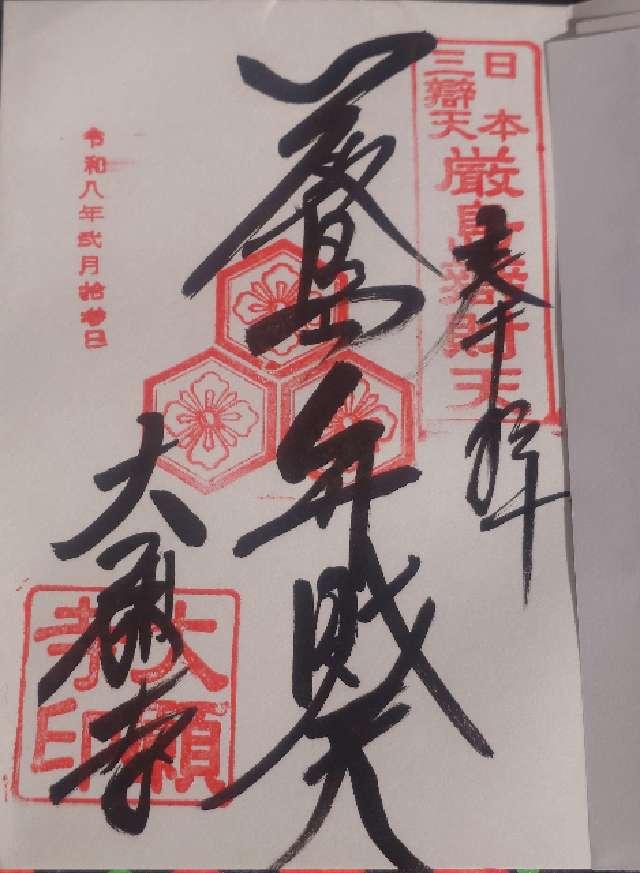 奉拝
日本
三辯天
厳島辯財天
厳島弁財天
大願寺
大願寺印
令和八年弐月拾日